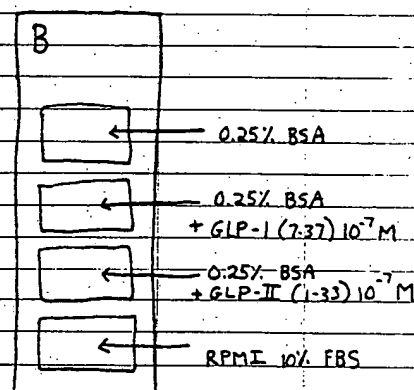 B
0.25% BSA
0.25% BSA
+ GLP-I (7-37) 10⁻⁷ M
0.25% BSA
+ GLP-II (1-33) 10⁻⁷ M
RPMI 10% FBS